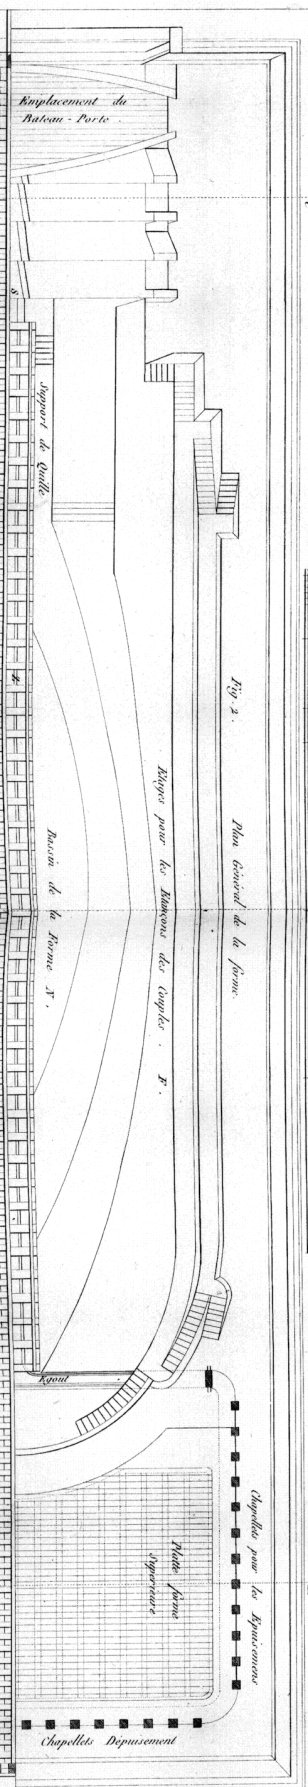 Emplacement du
Bateau - Porte.
8
Support de Quille
Fig. 2. Plan Général de la forme.
Etages pour les Etançons des Couples. F.
Bassin de la Forme N.
Egout
Chapellets pour les Epuisemens
Platte forme
Superieure
Chapellets Depuisement